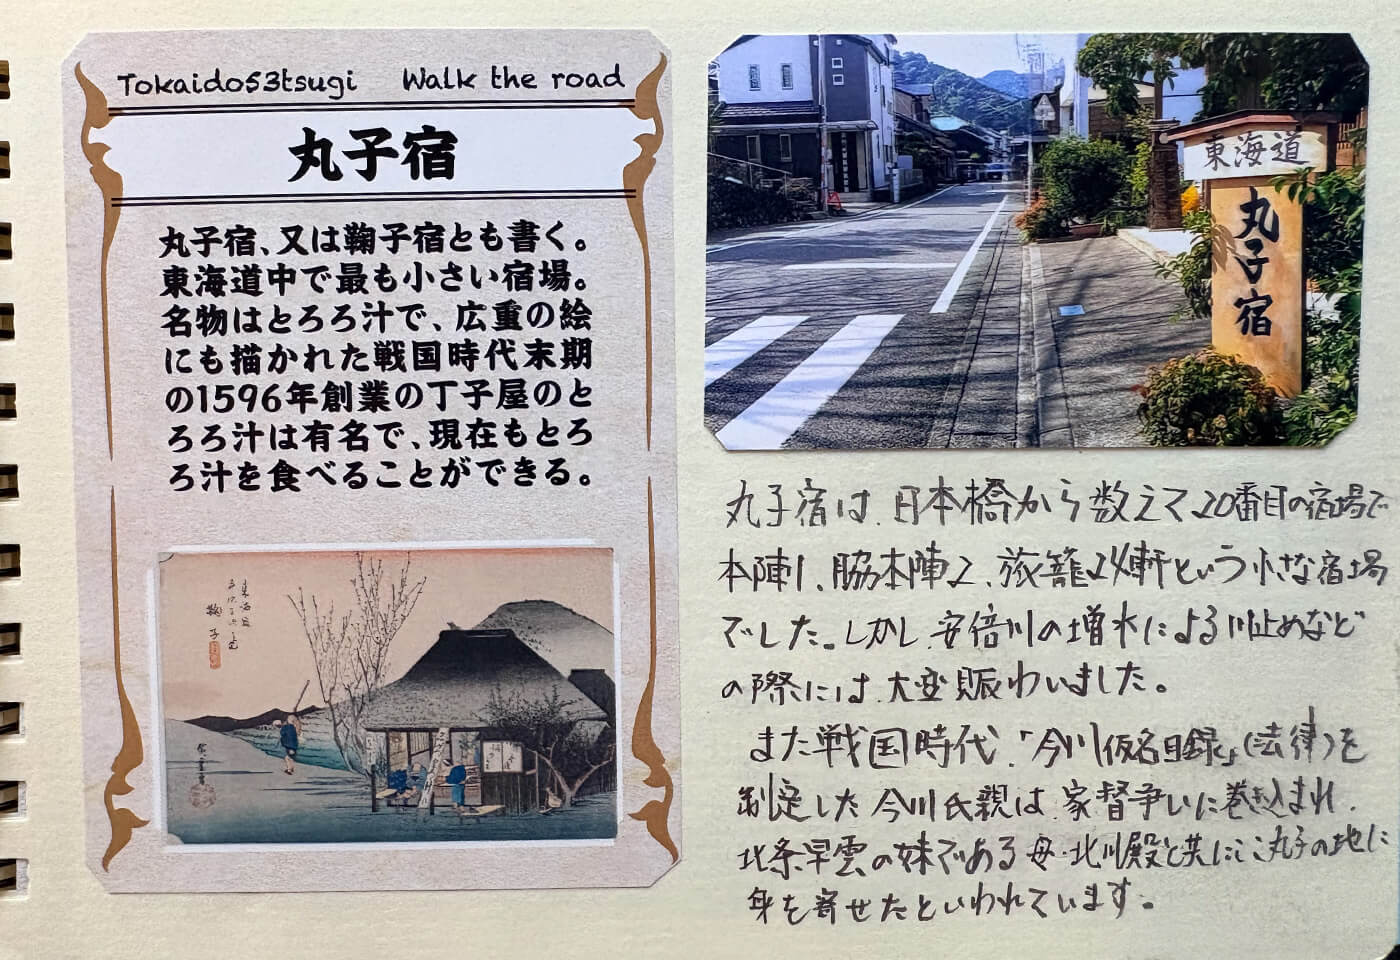 Tokaido53tsugi Walk the road
丸子宿
丸子宿、又は鞠子宿とも書く。
東海道中で最も小さい宿場。
名物はとろろ汁で、広重の絵
にも描かれた戦国時代末期
の1596年創業の丁子屋のと
ろろ汁は有名で、現在もとろ
ろ汁を食べることができる。
鞠子
東海道
丸子宿
丸子宿は、日本橋から数えて20番目の宿場で
本陣1、脇本陣2、旅籠24軒という小さな宿場
でした。しかし、安倍川の増水による川止めなど
の際には、大変賑わいました。
また戦国時代、「今川仮名目録」(法律)を
制定した今川氏親は、家督争いに巻き込まれ、
北条早雲の妹である母・北川殿と共にここ丸子の地に
身を寄せたといわれています。